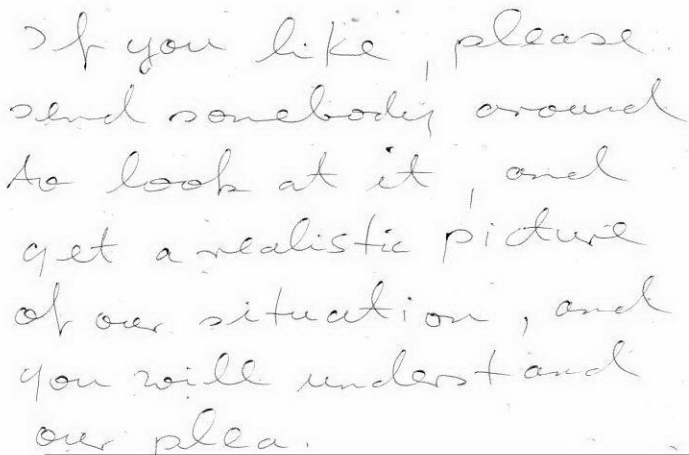 If you like, please
send somebody around
to look at it, and
get a realistic picture
of our situation, and
you will understand
our plea.